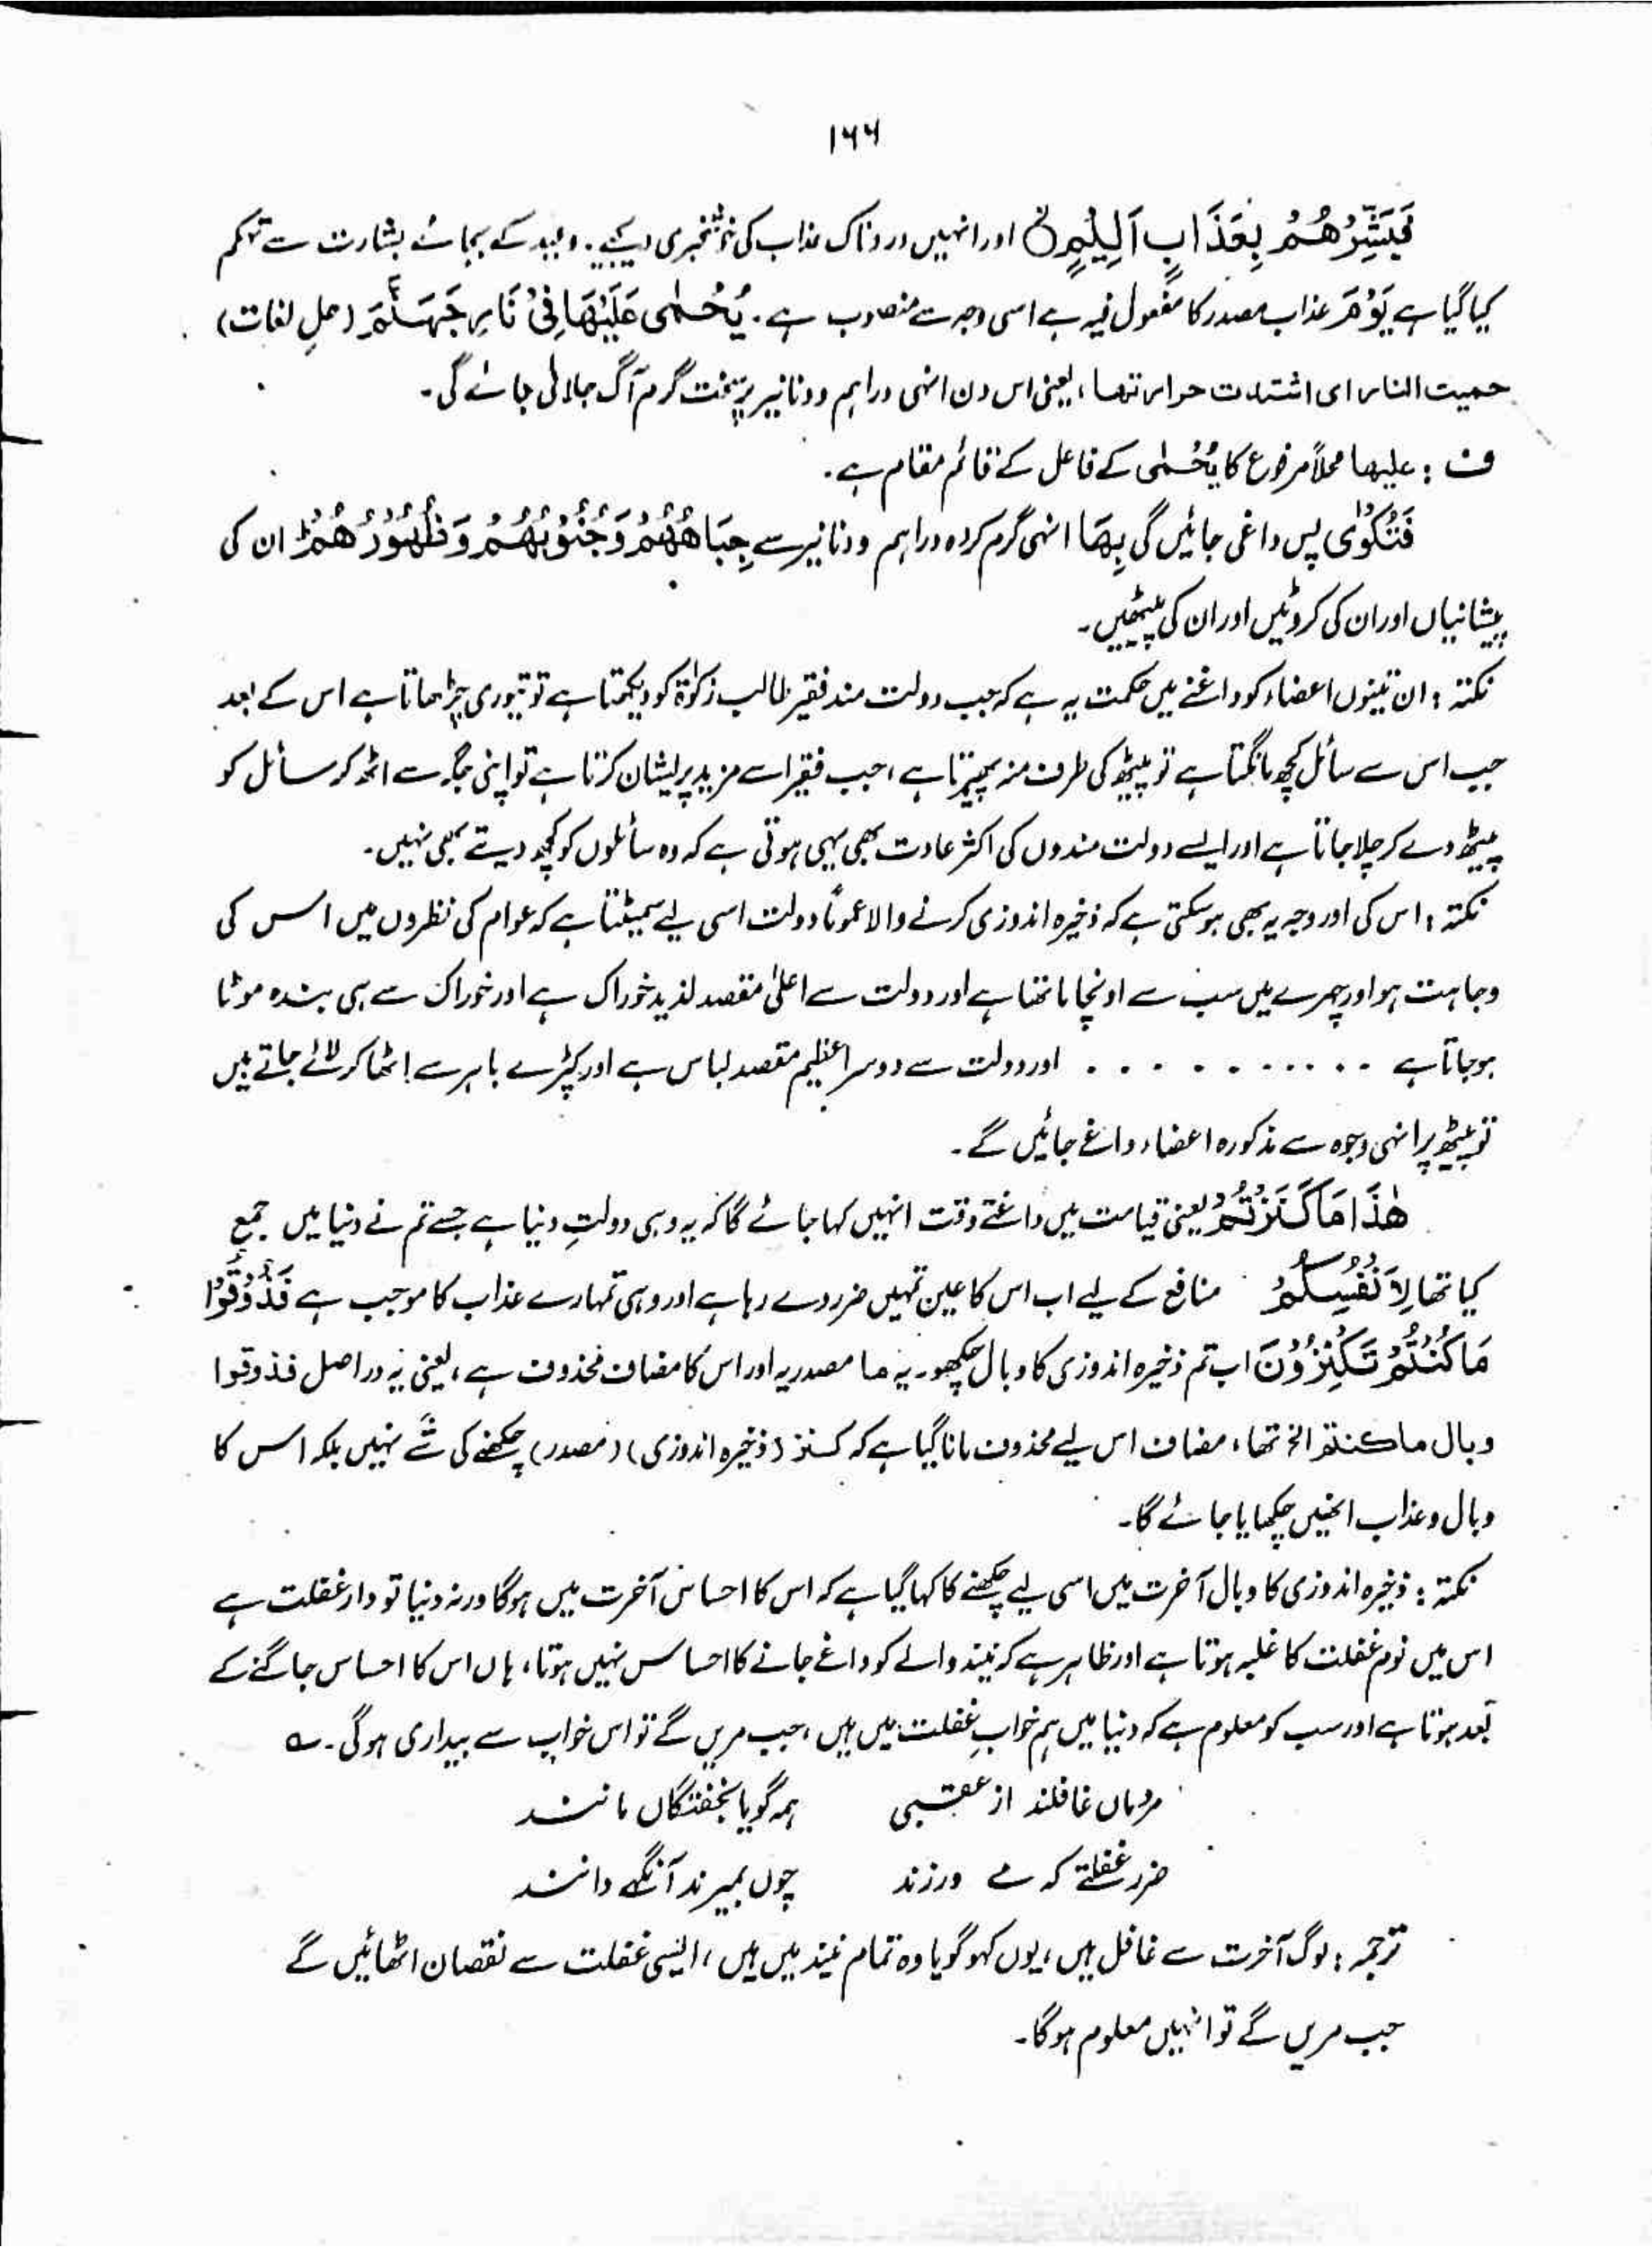 ۱۶۶
فَبَشِّرْهُمْ بِعَذَابٍ اَلِیْمٍ اور انہیں دردناک عذاب کی خوشخبری دیجیے۔ وعید کے بجائے بشارت سے تہکم
کیا گیا ہے یَوْمَ عذاب مصدر کا مفعول فیہ ہے اسی وجہ سے منصوب ہے۔ یُحْمٰی عَلَیْهَا فِیْ نَارِ جَهَنَّمَ (حلِ لغات)
حمیت النار ای اشتدت حرارتہا، یعنی اس دن انہی دراہم و دنانیر پر سخت گرم آگ جلائی جائے گی۔
ف : علیہا محلاً مرفوع کا یُحْمٰی کے فاعل کے قائم مقام ہے۔
فَتُكْوٰی پس داغی جائیں گی بِهَا انہی گرم کردہ دراہم و دنانیر سے جِبَاهُهُمْ وَجُنُوْبُهُمْ وَظُهُوْرُهُمْ ان کی
پیشانیاں اور ان کی کروٹیں اور ان کی پیٹھیں۔
نکتہ : ان تینوں اعضاء کو داغنے میں حکمت یہ ہے کہ جب دولت مند فقیر طالب زکوٰۃ کو دیکھتا ہے تو تیوری چڑھاتا ہے اس کے بعد
جب اس سے سائل کچھ مانگتا ہے تو پیٹھ کی طرف منہ پھیرتا ہے، جب فقیر اسے مزید پریشان کرتا ہے تو اپنی جگہ سے اٹھ کر سائل کو
پیٹھ دے کر چلا جاتا ہے اور ایسے دولت مندوں کی اکثر عادت بھی یہی ہوتی ہے کہ وہ سائلوں کو کچھ دیتے بھی نہیں۔
نکتہ : اس کی اور وجہ یہ بھی ہو سکتی ہے کہ ذخیرہ اندوزی کرنے والا عموماً دولت اسی لیے سمیٹتا ہے کہ عوام کی نظروں میں اس کی
وجاہت ہو اور چہرے میں سب سے اونچا ماتھا ہے اور دولت سے اعلیٰ مقصد لذیذ خوراک ہے اور خوراک سے ہی بندہ موٹا
ہو جاتا ہے . . . . . . . . . . . اور دولت سے دوسرا عظیم مقصد لباس ہے اور کپڑے باہر سے اٹھا کر لائے جاتے ہیں
تو پیٹھ پر انہی وجوہ سے مذکورہ اعضاء داغے جائیں گے۔
هٰذَا مَا كَنَزْتُمْ یعنی قیامت میں داغتے وقت انہیں کہا جائے گا کہ یہ وہی دولتِ دنیا ہے جسے تم نے دنیا میں جمع
کیا تھا لِاَنْفُسِكُمْ منافع کے لیے اب اس کا عین تمہیں ضرر دے رہا ہے اور وہی تمہارے عذاب کا موجب ہے فَذُوْقُوْا
مَا كُنْتُمْ تَكْنِزُوْنَ اب تم ذخیرہ اندوزی کا وبال چکھو۔ یہ ما مصدریہ اور اس کا مضاف محذوف ہے، یعنی یہ دراصل فذوقوا
وبال ما کنتم الخ تھا، مضاف اس لیے محذوف مانا گیا ہے کہ کنز (ذخیرہ اندوزی) (مصدر) چکھنے کی شے نہیں بلکہ اس کا
وبال و عذاب انھیں چکھایا جائے گا۔
نکتہ : ذخیرہ اندوزی کا وبال آخرت میں اسی لیے چکھنے کا کہا گیا ہے کہ اس کا احساس آخرت میں ہوگا ورنہ دنیا تو دار غفلت ہے
اس میں نوم غفلت کا غلبہ ہوتا ہے اور ظاہر ہے کہ نیند والے کو داغے جانے کا احساس نہیں ہوتا، ہاں اس کا احساس جاگنے کے
بعد ہوتا ہے اور سب کو معلوم ہے کہ دنیا میں ہم خوابِ غفلت میں ہیں، جب مریں گے تو اس خواب سے بیداری ہوگی۔ ؎
مردماں غافلند از عقبیٰ ہمہ گویا بخفتگاں مانند
ضرر غفلتے کہ مے ورزند چوں بمیرند آنگہے دانند
ترجمہ : لوگ آخرت سے غافل ہیں، یوں کہو گویا وہ تمام نیند میں ہیں، ایسی غفلت سے نقصان اٹھائیں گے
جب مریں گے تو انہیں معلوم ہوگا۔